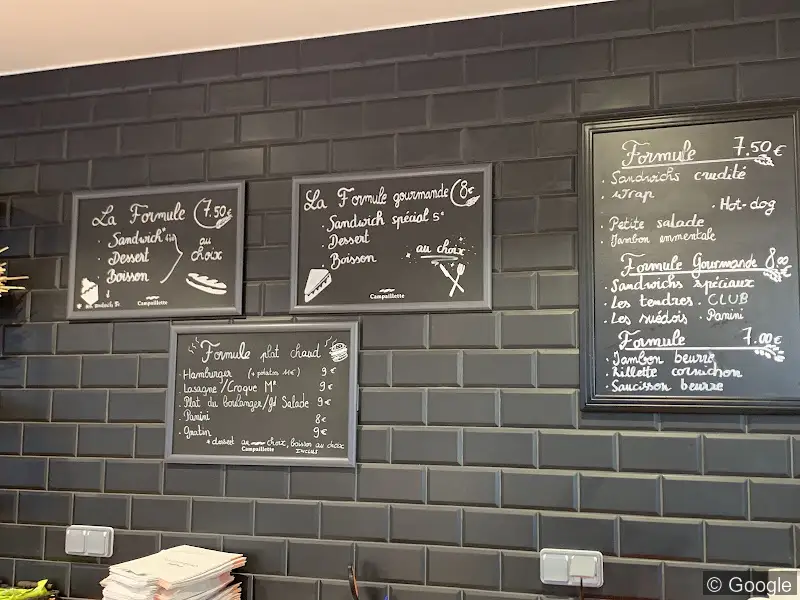 La Formule 7.50
. Sandwich*
. Dessert
. Boisson
au
choix
Campaillette
La Formule gourmande 8€
. Sandwich spécial
. Dessert
. Boisson
au choix
Campaillette
Formule plat chaud
. Hamburger (+ potatoes 1€) 9€
. Lasagne/Croque Mr 9€
. Plat du boulanger/gd Salade 9€
. Panini 8€
. Gratin 9€
* dessert au choix, boisson au choix
Inclus
Campaillette
Formule 7.50€
. Sandwichs crudité
. Wrap
. Hot-dog
. Petite salade
. Jambon emmentale
Formule Gourmande 8.00
. Sandwichs spéciaux
. Les tendres . CLUB
. Les suédois . Panini
Formule 7.00€
. Jambon beurre
. Rillette cornichon
. Saucisson beurre
© Google